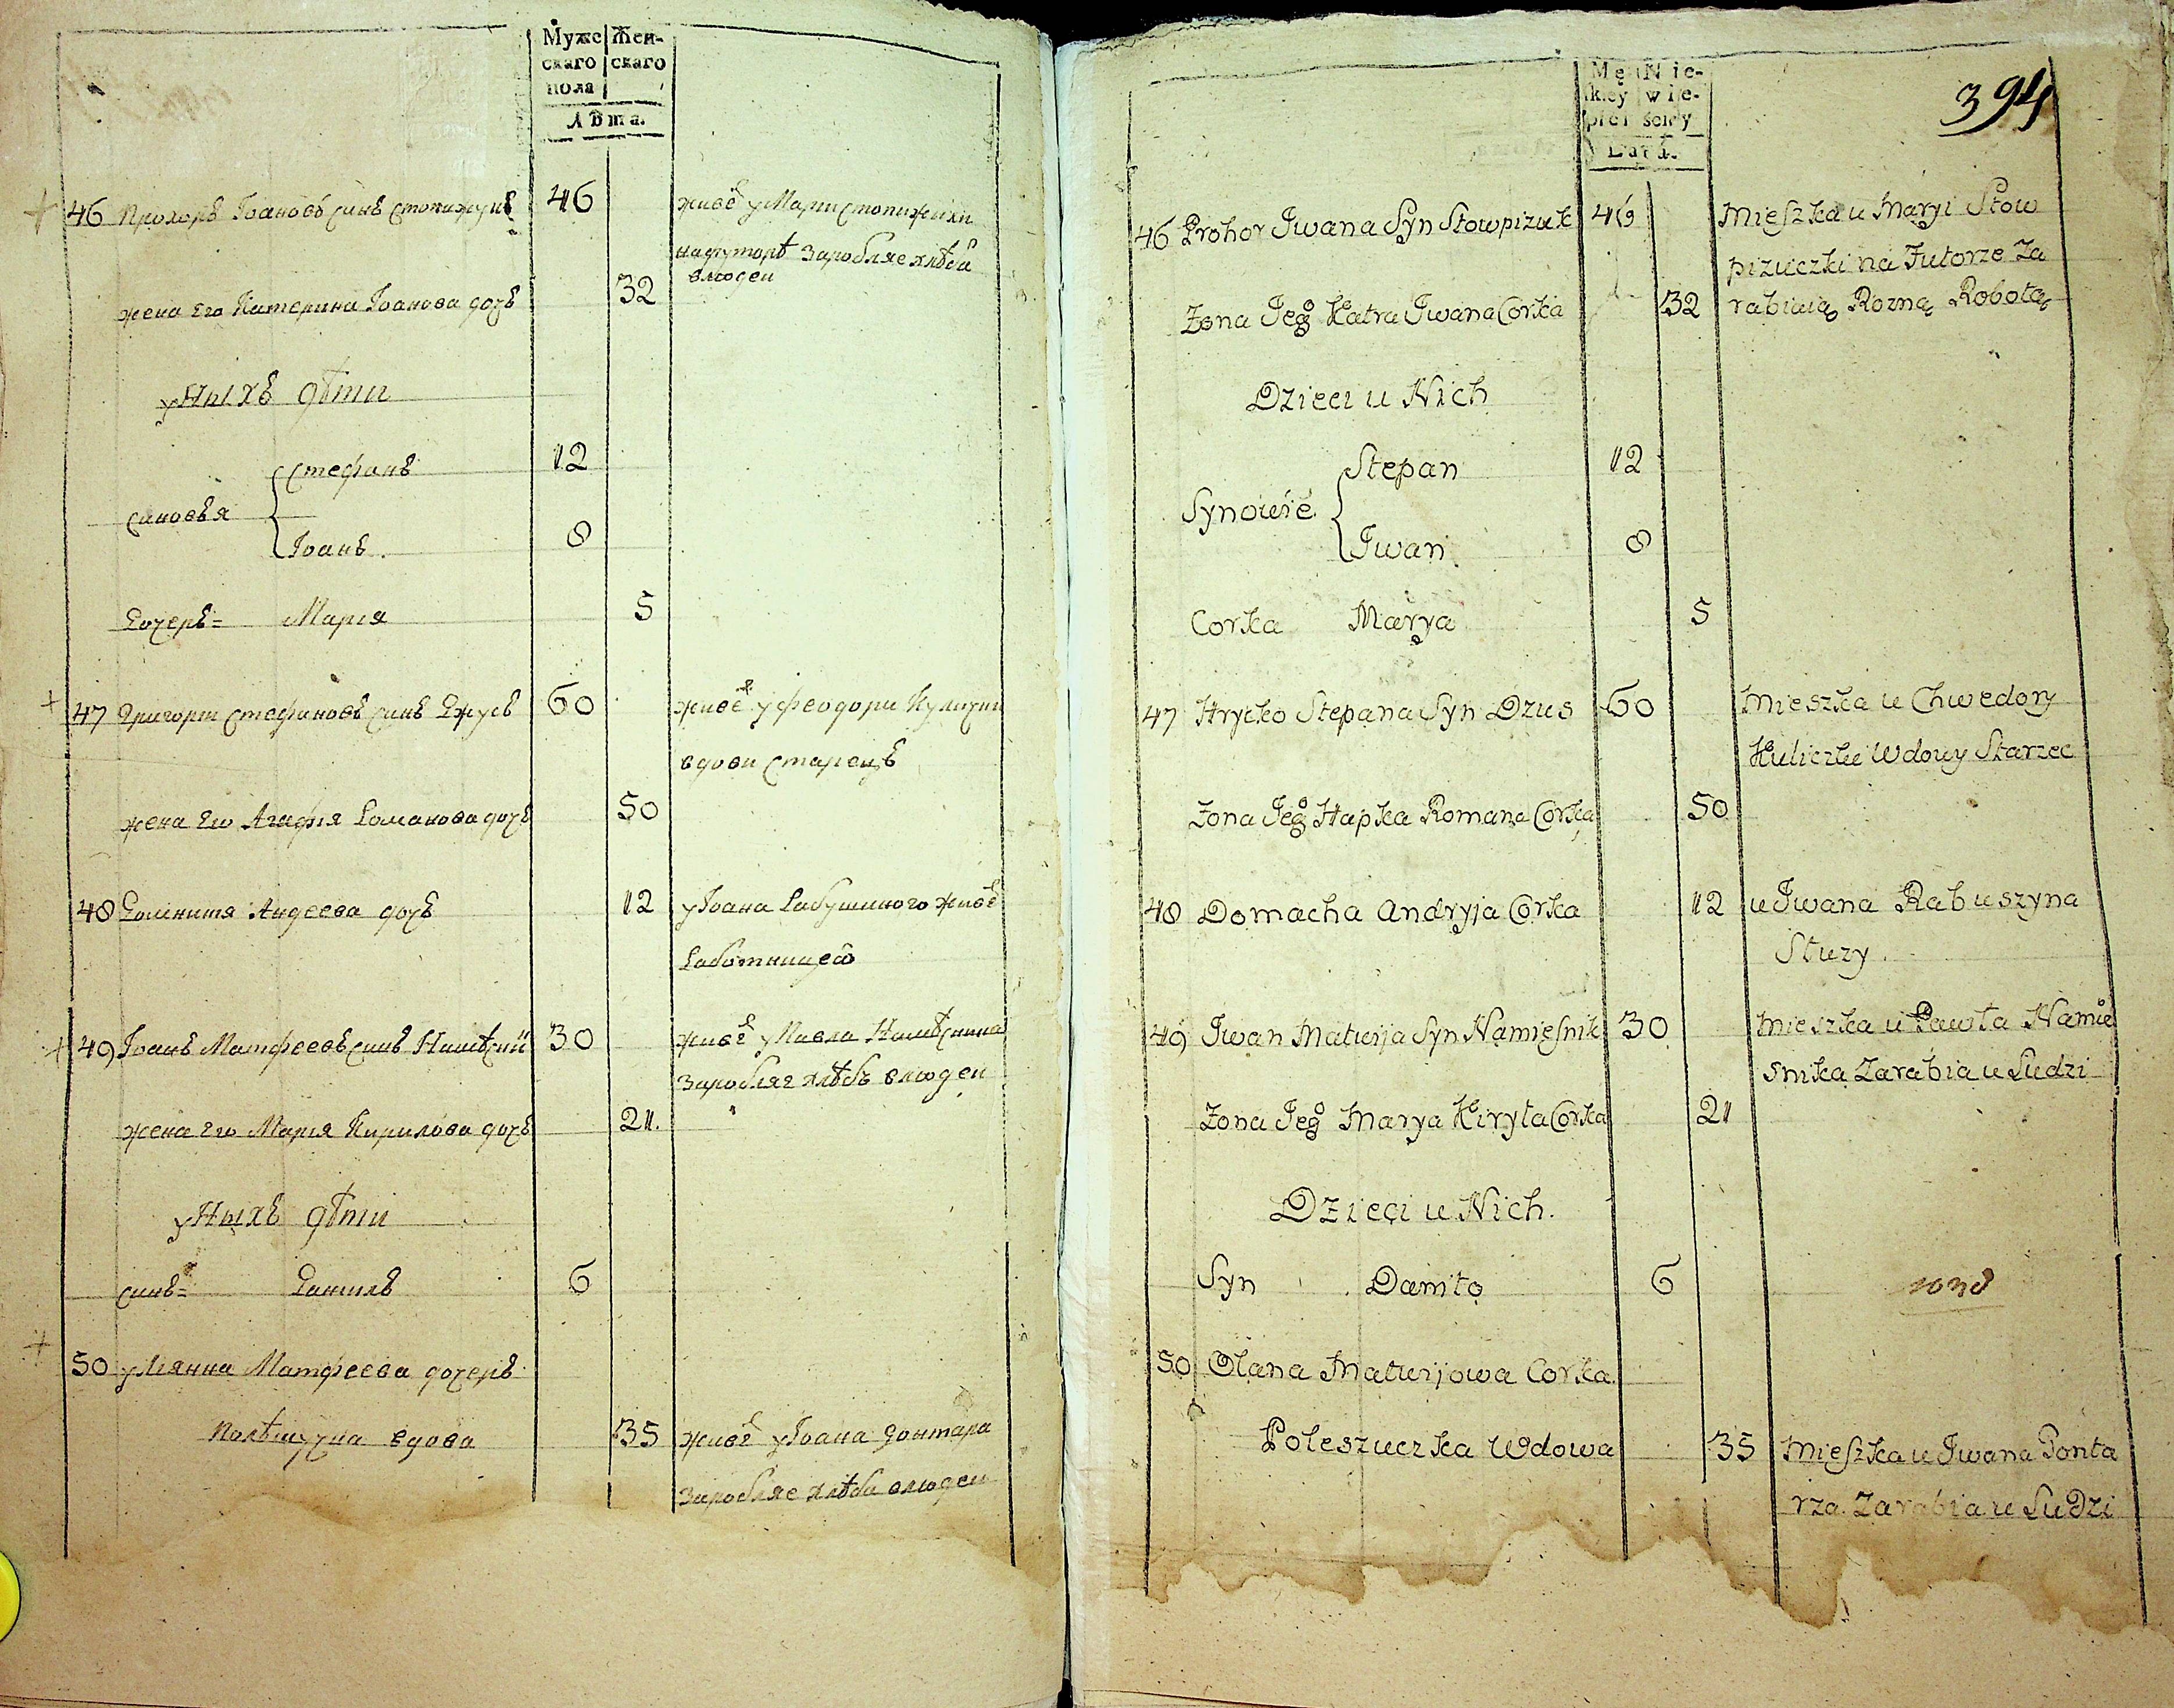 Муже Жен-
скаго скаго
пола
Лѣта.
46 Прохоръ Іоановъ синъ Стопижукъ 46 живе у Марии Стопижихи
на футорѣ заробляе хлѣба
в людеи
жена его Катерина Іоанова дочъ 32
у Ныхъ дѣти
Стефанъ 12
синовья
Іоанъ 8
Дочерь= Марія 5
47 Григории Стефановъ синъ Джусъ 60 живе у Феодори Кулички
вдови старецъ
жена его Агафия Романова дочъ 50
48 Домникия Андеева дочъ 12 у Іоана Рабушиного живе
Работницею
49 Іоанъ Матфеевъ синъ 30 живе у Павла
заробляе хлѣбъ в людеи
жена его Марія Кирилова дочъ 21.
у Ныхъ дѣти
синъ= Данилъ 6
50 улиянна Матфеева дочерь
Полѣшучка вдова 35 живе у Іоана Донтара
заробляе хлѣба в людеи
394
Mę Nie-
kiey wie-
płci ściey
Lata.
46 Prohor Iwana Syn Stowpizuk 46 Mieszka u Maryi Stow
pizuczki na Futorze Za
Zona Jego Katra Iwana Corka 32 rabiaią Rozną Robotą
Dzieci u Nich
Stepan 12
Synowie
Iwan 8
Corka Marya 5
47 Hrycko Stepana Syn Dzus 60 Mieszka u Chwedory
Kuliczki Wdowy Starzec
Zona Jego Hapka Romana Corka 50
48 Domacha Andryja Corka 12 u Iwana Rabuszyna
Słuzy
49 Iwan Matwija Syn Namiesnik 30 Mieszka u Pawła Namie
snika Zarabia u Ludzi
Zona Jego Marya Kiryła Corka 21
Dzieci u Nich.
Syn Daniło 6
50 Olana Matwijowa Corka.
Poleszuczka Wdowa 35 Mieszka u Iwana Gonta
rza Zarabia u Ludzi